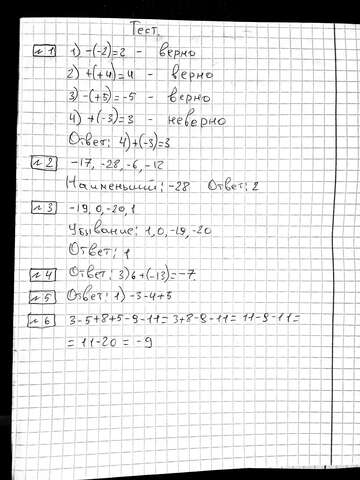 Тест.
№1 1) -(-2)=2 - верно
2) +(+4)=4 - верно
3) -(+5)=-5 - верно
4) +(-3)=3 - неверно
Ответ: 4)+(-3)=3
№2 -17, -28, -6, -12
Наименьший: -28 Ответ: 2
№3 -19, 0, -20, 1
Убывание: 1, 0, -19, -20
Ответ: 1
№4 Ответ: 3) 6+(-13)=-7.
№5 Ответ: 1) -3-4+5
№6 3-5+8+5-9-11=3+8-9-11=11-9-11=
=11-20=-9